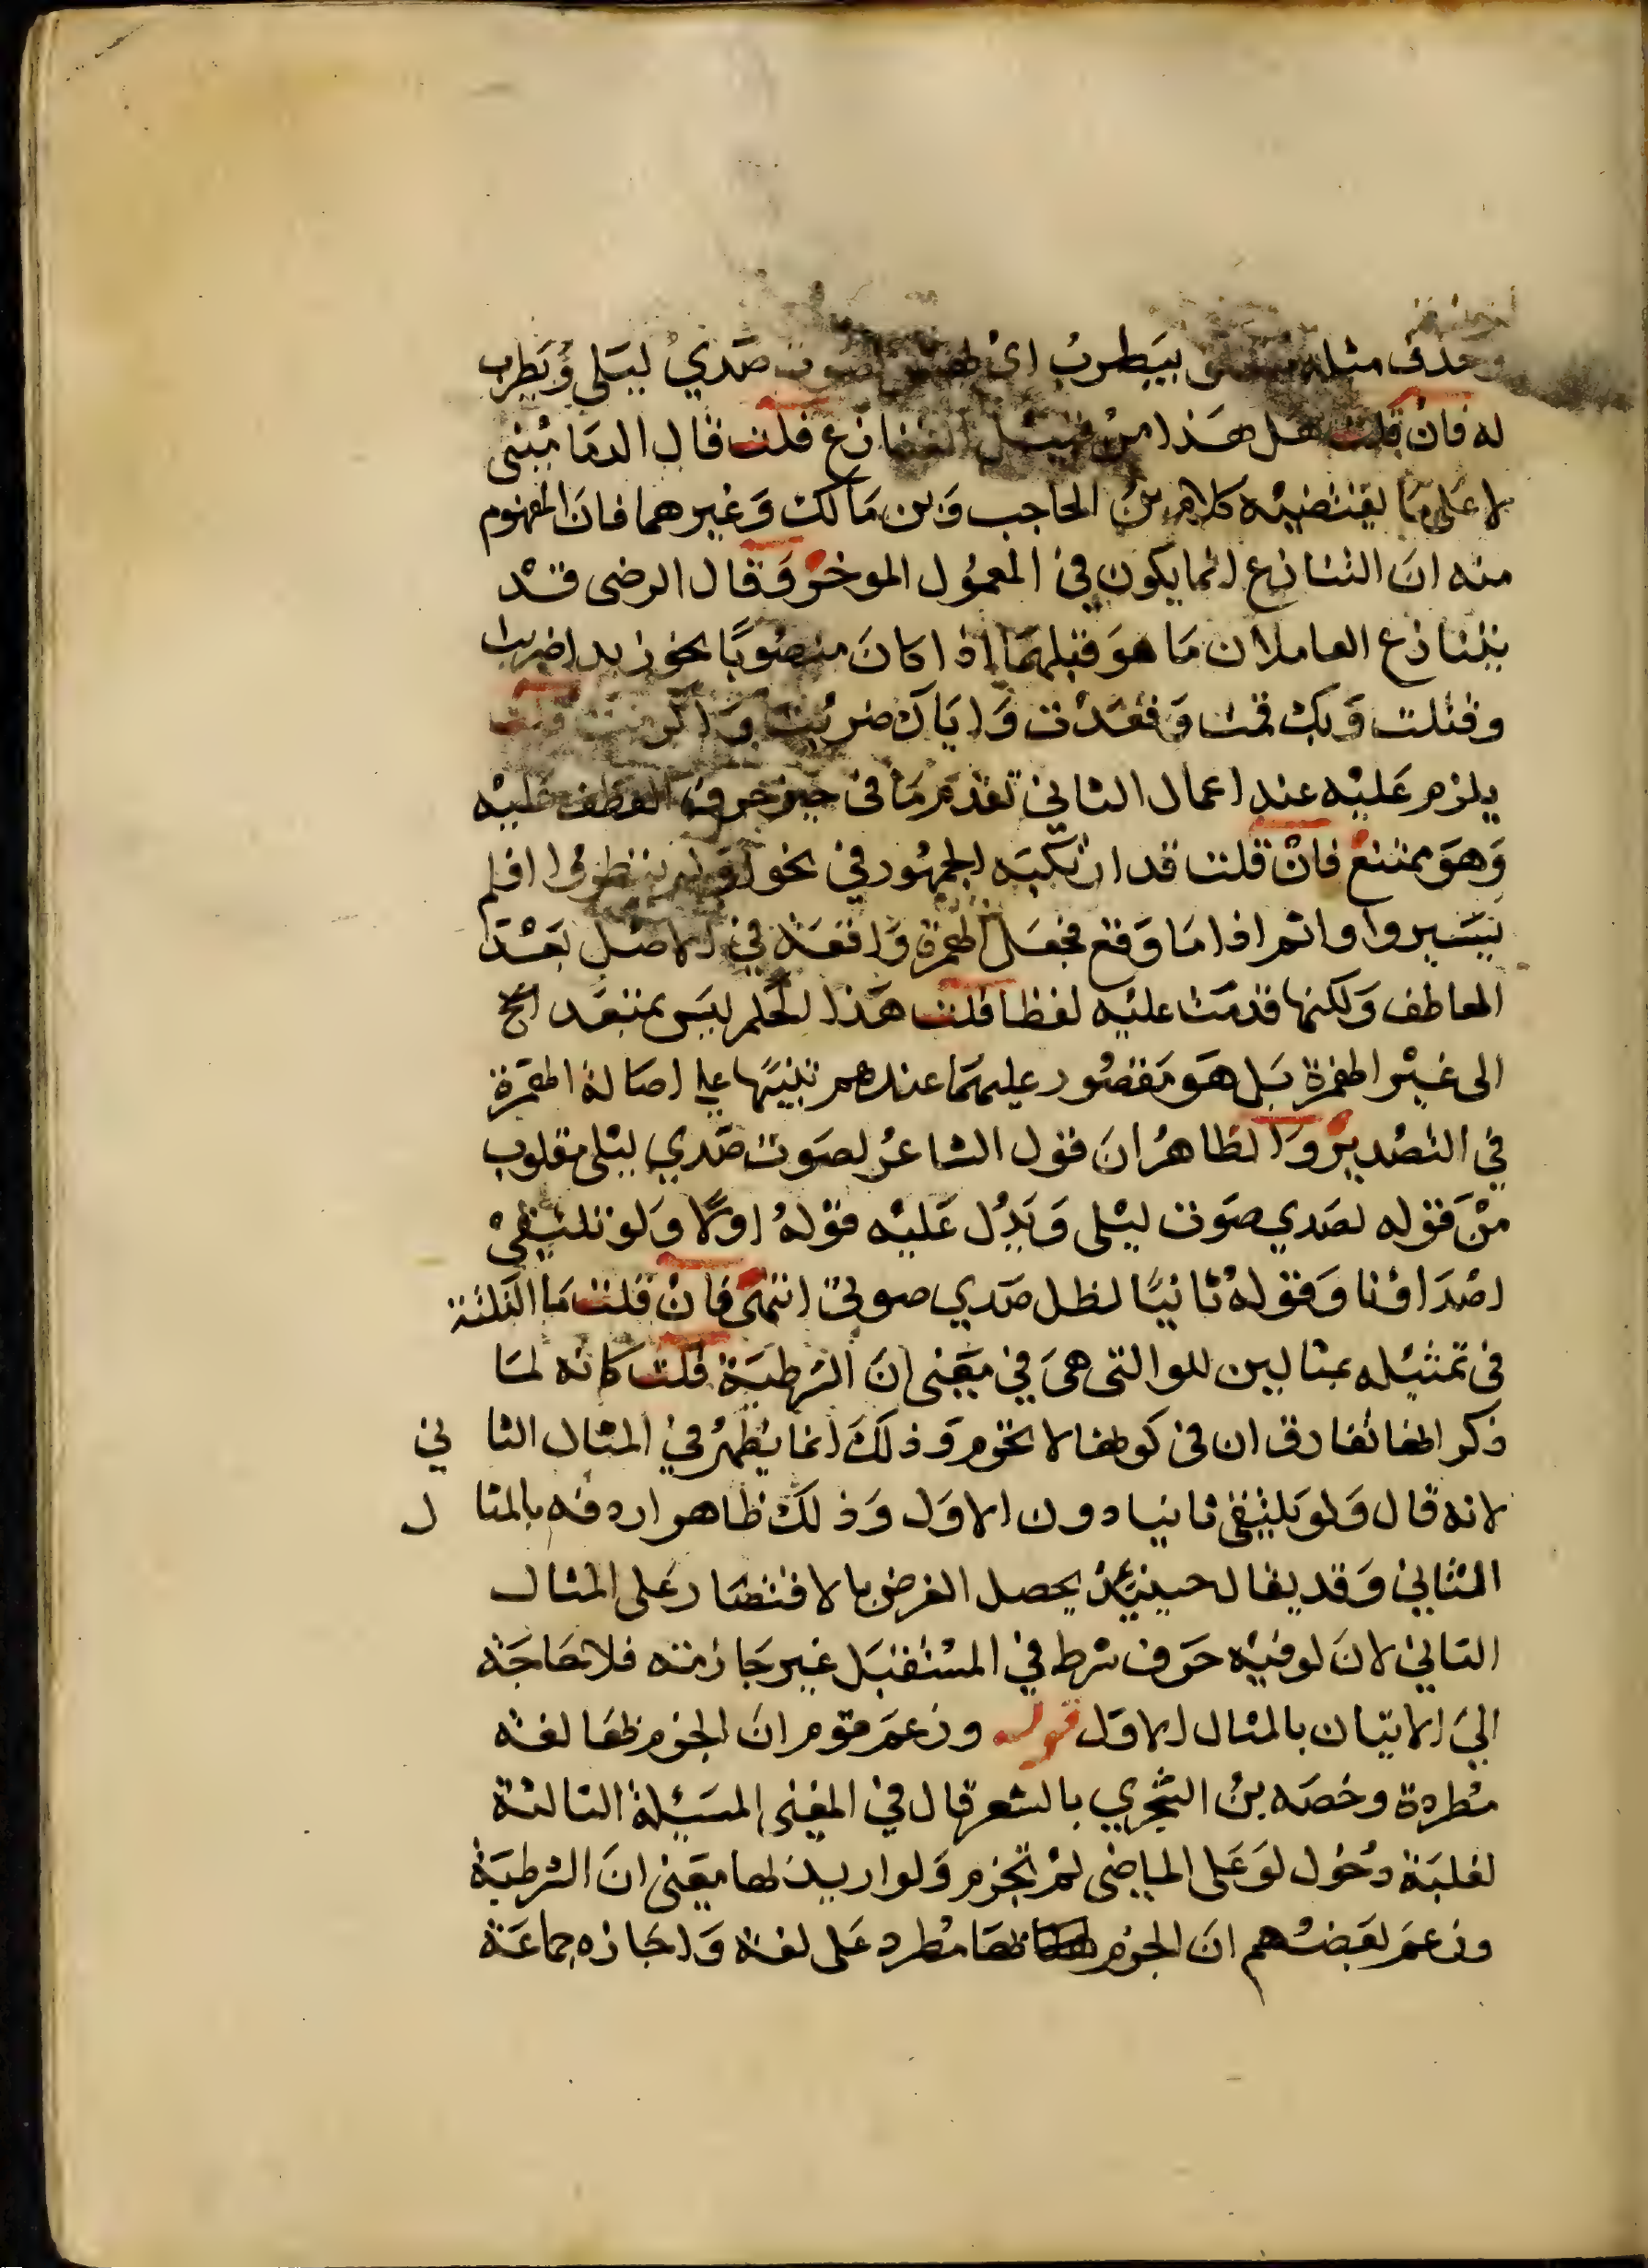 وحذف مثله بيطرب اي لصوت صَدي ليَلي وَيَطرب
له فان قلت هل هَذا من قبيل التنازع قلت قال الدمَاميني
لا عَلى مَا يقتضيه كلام بن الحاجب وَبن مَالك وَغيرهما فانَ المفهوم
منه انَ التنازع انما يكون في المعمُول الموخر وَقال الرضى قد
يتنازع العاملان مَا هوَ قبلهمَا اذا كانَ منصوبًا نحو زيدا ضربت
وقتلت وَبك قمت وَقعَدت وَاياك ضربت وَاكرمت قلت
يلزم عَليْه عند اعمال الثاني تقدم مَا في حيز حرف العطف عَليْه
وَهوَ ممتنع فان قلت قد ارتكبَه الجمهُور في نحو اوَلم ينظروا افلم
يَسيروا واثم اذا مَا وَقع فجعَل الهمزة وَاقعَة في الاصْل بَعْد
العاطف وَلكنها قدمَت عليْه لفظا قلت هَذا الحكم ليسَ بمتعَد الخ
الى غيْر الهمزة بَل هَوَ مَقصُور عليهمَا عندهم تنبيهًا على اصَالة الهمَزة
في التصْدير وَالظاهرُ انَ قول الشاعرُ لصَوت صَدي ليْلى مقلوب
منْ قوله لصَدي صَوت ليْلى وَيَدُل عَليْه قوْلهُ اولا وَلو تلتقيْ
اصْدَاؤنا وَقوْلهُ ثانيًا لظل صَدي صوتي انتهىَ فان قلت مَا النكتة
في تمثيْله بمثالين للو التى هىَ في مَعْنى انَ الشرطيَة قلت كانه لمَا
ذكر انها تفارق ان في كونها لا تجزم وَذلكَ انما يَظهرُ في المثال الثا ني
لانه قال وَلو يَلتقى ثانيا دون الاوَل وَذلكَ ظاهر اردفه بالمثا ل
الثاني وَقد يقال حينيئذ يحصل الغرض بالاقتصَار عَلى المثال
الثاني لانَ لو فيْه حَرف شرط في المسْتقبَل غيْر جَازمَة فلا حَاجَة
الىَ الاتيان بالمثال الاوَل قوله وزعمَ قوم انَ الجزم بهَا لغة
مُطردة وخصَه بن الشجَري بالشعر قال في المغنى المسَئلة الثالثة
لغلبَة دخُول لوَ عَلى الماضى لمْ تجزم وَلو اريد بها مَعْنى انَ الشرطيَة
وزعمَ بَعضهُم انَ الجزم بهَا مُطرد عَلى لغة وَاجَازه جماعَة